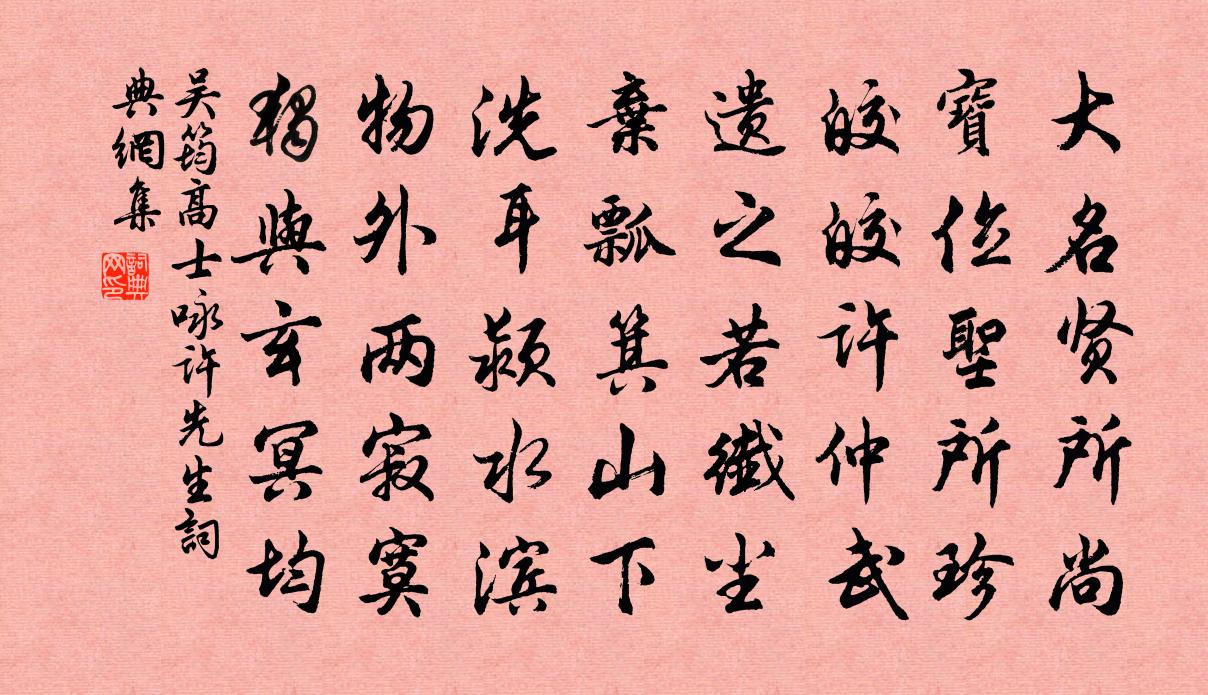 大名贤所尚
寶位聖所珍
皎皎許仲武
遗之若纖尘
棄瓢箕山下
洗耳颍水滨
物外两寂寞
獨與玄冥均
吴筠高士咏許先生詞
典網集
詞典网印